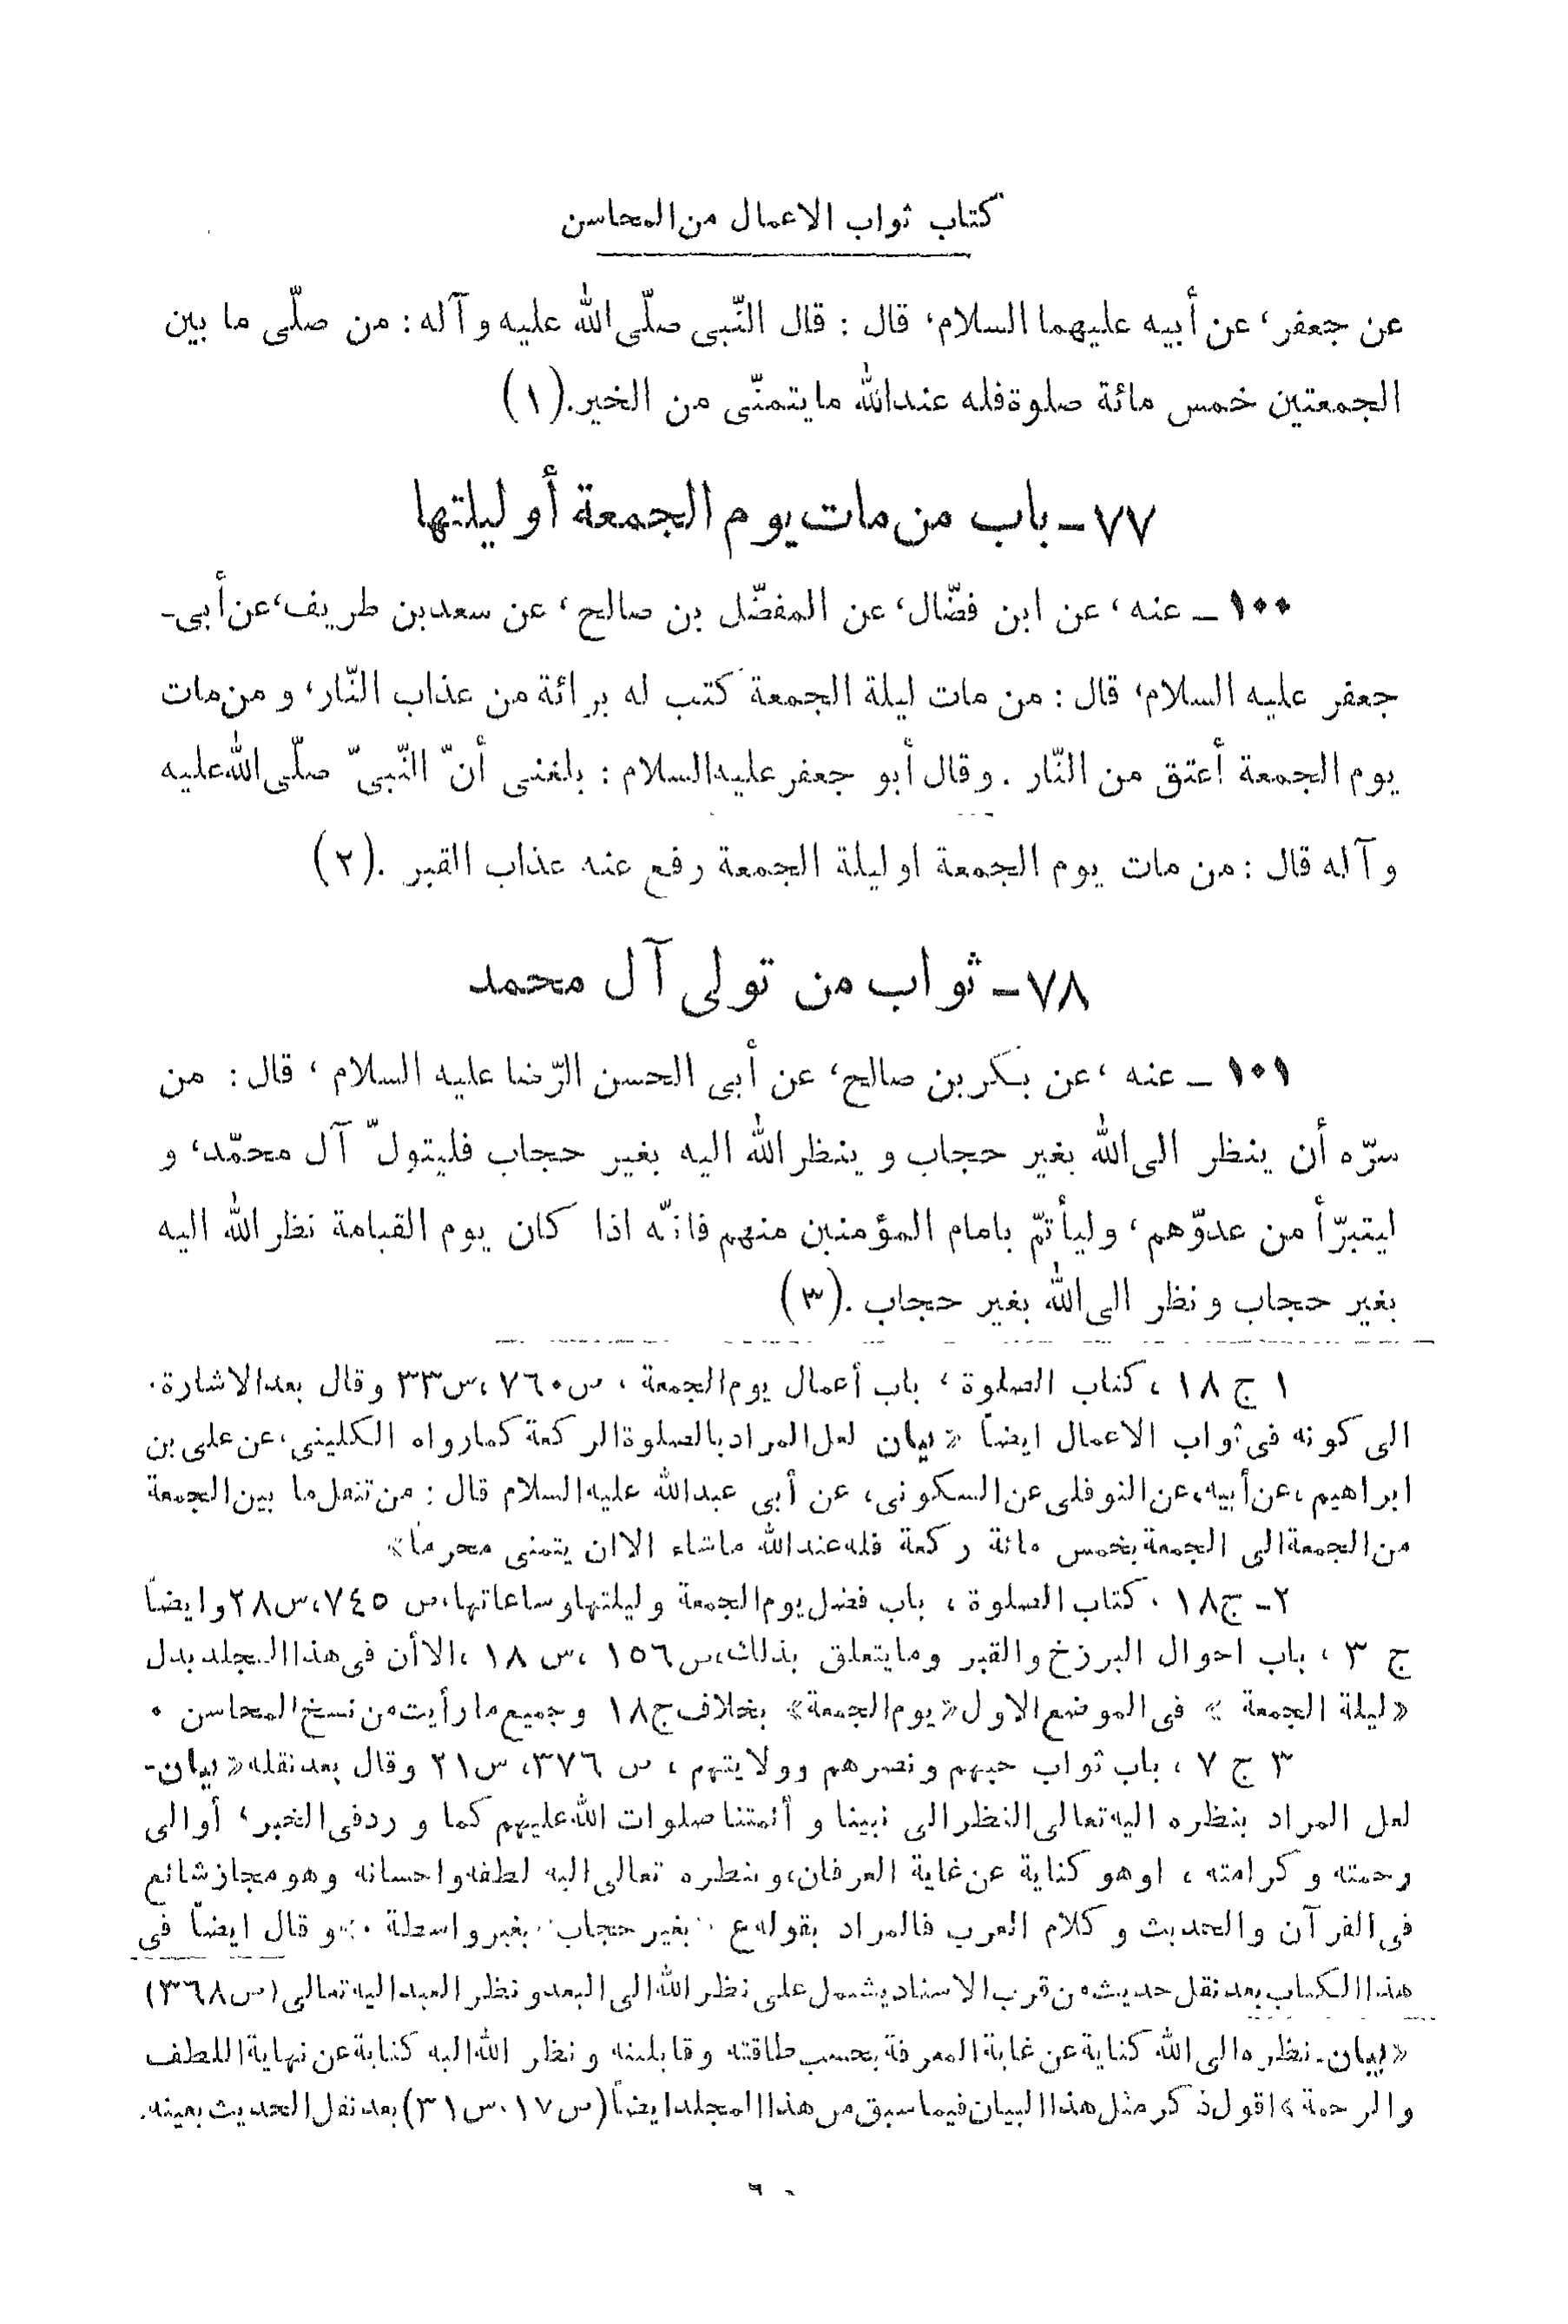 كتاب ثواب الاعمال من المحاسن
عن جعفر، عن أبيه عليهما السلام، قال : قال النّبى صلّى الله عليه و آله : من صلّى ما بين
الجمعتين خمس مائة صلوة فله عندالله ما يتمنّى من الخير.(١)
٧٧ – باب من مات يوم الجمعة أو ليلتها
١٠٠ – عنه ، عن ابن فضّال، عن المفضّل بن صالح ، عن سعد بن طريف، عن أبى-
جعفر عليه السلام، قال : من مات ليلة الجمعة كتب له برائة من عذاب النّار، و من مات
يوم الجمعة أعتق من النّار . و قال أبو جعفر عليه السلام : بلغنى أنّ النّبىّ صلّى الله عليه
و آله قال : من مات يوم الجمعة او ليلة الجمعة رفع عنه عذاب القبر .(٢)
٧٨ – ثواب من تولى آل محمد
١٠١ – عنه ، عن بكر بن صالح، عن أبى الحسن الرّضا عليه السلام ، قال : من
سرّه أن ينظر الى الله بغير حجاب و ينظر الله اليه بغير حجاب فليتولّ آل محمّد، و
ليتبرّأ من عدوّهم ، و ليأتمّ بامام المؤمنين منهم فانّه اذا كان يوم القيامة نظر الله اليه
بغير حجاب و نظر الى الله بغير حجاب .(٣)
١ ج ١٨ ، كتاب الصلوة ، باب أعمال يوم الجمعة ، ص ٧٦٠، س ٣٣ و قال بعد الاشارة.
الى كونه فى ثواب الاعمال ايضاً « بيان لعل المراد بالصلوة الركعة كما رواه الكلينى، عن على بن
ابراهيم ، عن أبيه، عن النوفلى عن السكونى، عن أبى عبدالله عليه السلام قال : من تنفل ما بين الجمعة
من الجمعة الى الجمعة بخمس مائة ركعة فله عندالله ماشاء الا ان يتمنى محرماً»
٢- ج ١٨ . كتاب الصلوة ، باب فضل يوم الجمعة و ليلتها و ساعاتها، ص ٧٤٥، س ٢٨ و ايضاً
ج ٣ ، باب احوال البرزخ و القبر و ما يتعلق بذلك، ص ١٥٦ ، س ١٨ ، الا أن فى هذا المجلد بدل
«ليلة الجمعة » فى الموضع الاول «يوم الجمعة» بخلاف ج ١٨ و جميع ما رأيت من نسخ المحاسن .
٣ ج ٧ ، باب ثواب حبهم و نصرهم و ولايتهم ، ص ٣٧٦، س ٢١ و قال بعد نقله « بيان-
لعل المراد بنظره اليه تعالى النظر الى نبينا و أئمتنا صلوات الله عليهم كما و رد فى الخبر ، أو الى
رحمته و كرامته ، او هو كناية عن غاية العرفان، و بنظره تعالى اليه لطفه و احسانه و هو مجاز شائع
فى القرآن و الحديث و كلام العرب فالمراد بقوله ع "بغير حجاب" بغير واسطة .» و قال ايضاً فى
هذا الكتاب بعد نقل حديث من قرب الاسناد يشمل على نظر الله الى العبد و نظر العبد اليه تعالى (ص ٣٦٨)
«بيان- نظره الى الله كناية عن غاية المعرفة بحسب طاقته و قابليته و نظر الله اليه كناية عن نهاية اللطف
و الرحمة » اقول ذكر مثل هذا البيان فيما سبق من هذا المجلد ايضاً (ص ١٧، س ٣١) بعد نقل الحديث بعينه.